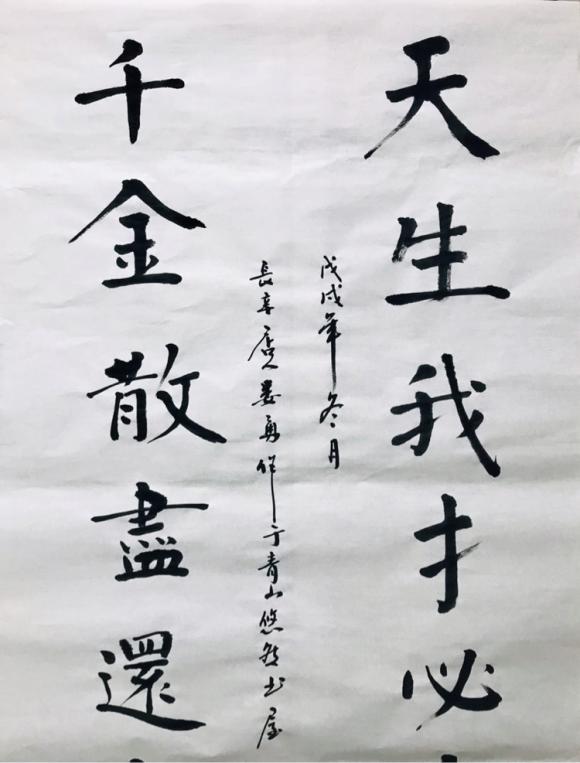 天生我才必
戊戌年冬月
長李居人娄勇作于青山悠然书屋
千金散盡還